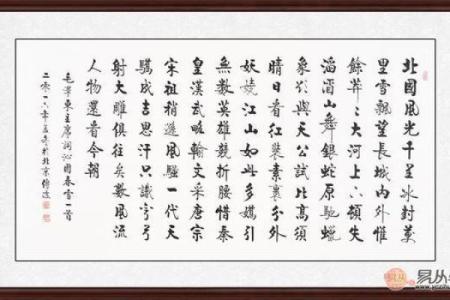 北國風光千里冰封萬
里雪飄望長城内外惟
餘莽々大河上下頓失
滔滔山舞銀蛇原馳蠟
象欲與天公試比高須
晴日看紅裝素裹分外
妖嬈江山如此多嬌引
無數英雄競折腰惜秦
皇漢武略輸文采唐宗
宋祖稍遜風騷一代天
驕成吉思汗只識彎弓
射大雕俱往矣數風流
人物還看今朝
毛澤東主席詞沁園春雪一首
二零一六年於北京
易从